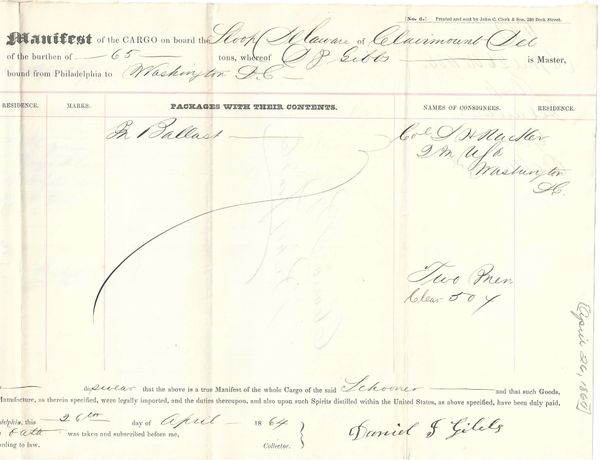 No. 6. Printed and sold by John C. Clark & Son, 230 Dock Street.
Manifest of the CARGO on board the Sloop Delaware of Clairmount Del
of the burthen of 65 tons, whereof D J Gibbs is Master,
bound from Philadelphia to Washington D.C
RESIDENCE. MARKS. PACKAGES WITH THEIR CONTENTS. NAMES OF CONSIGNEES. RESIDENCE.
In Ballast Col D H Rucker
Q M U S A
Washington
D.C.
Two Men
Clear 504
do swear that the above is a true Manifest of the whole Cargo of the said Schooner and that such Goods,
Manufacture, as therein specified, were legally imported, and the duties thereupon, and also upon such Spirits distilled within the United States, as above specified, have been duly paid.
delphia, this 26th day of April 1864
oath was taken and subscribed before me,
eding to law. Collector.
Daniel J Gibbs
[April 26, 1864]